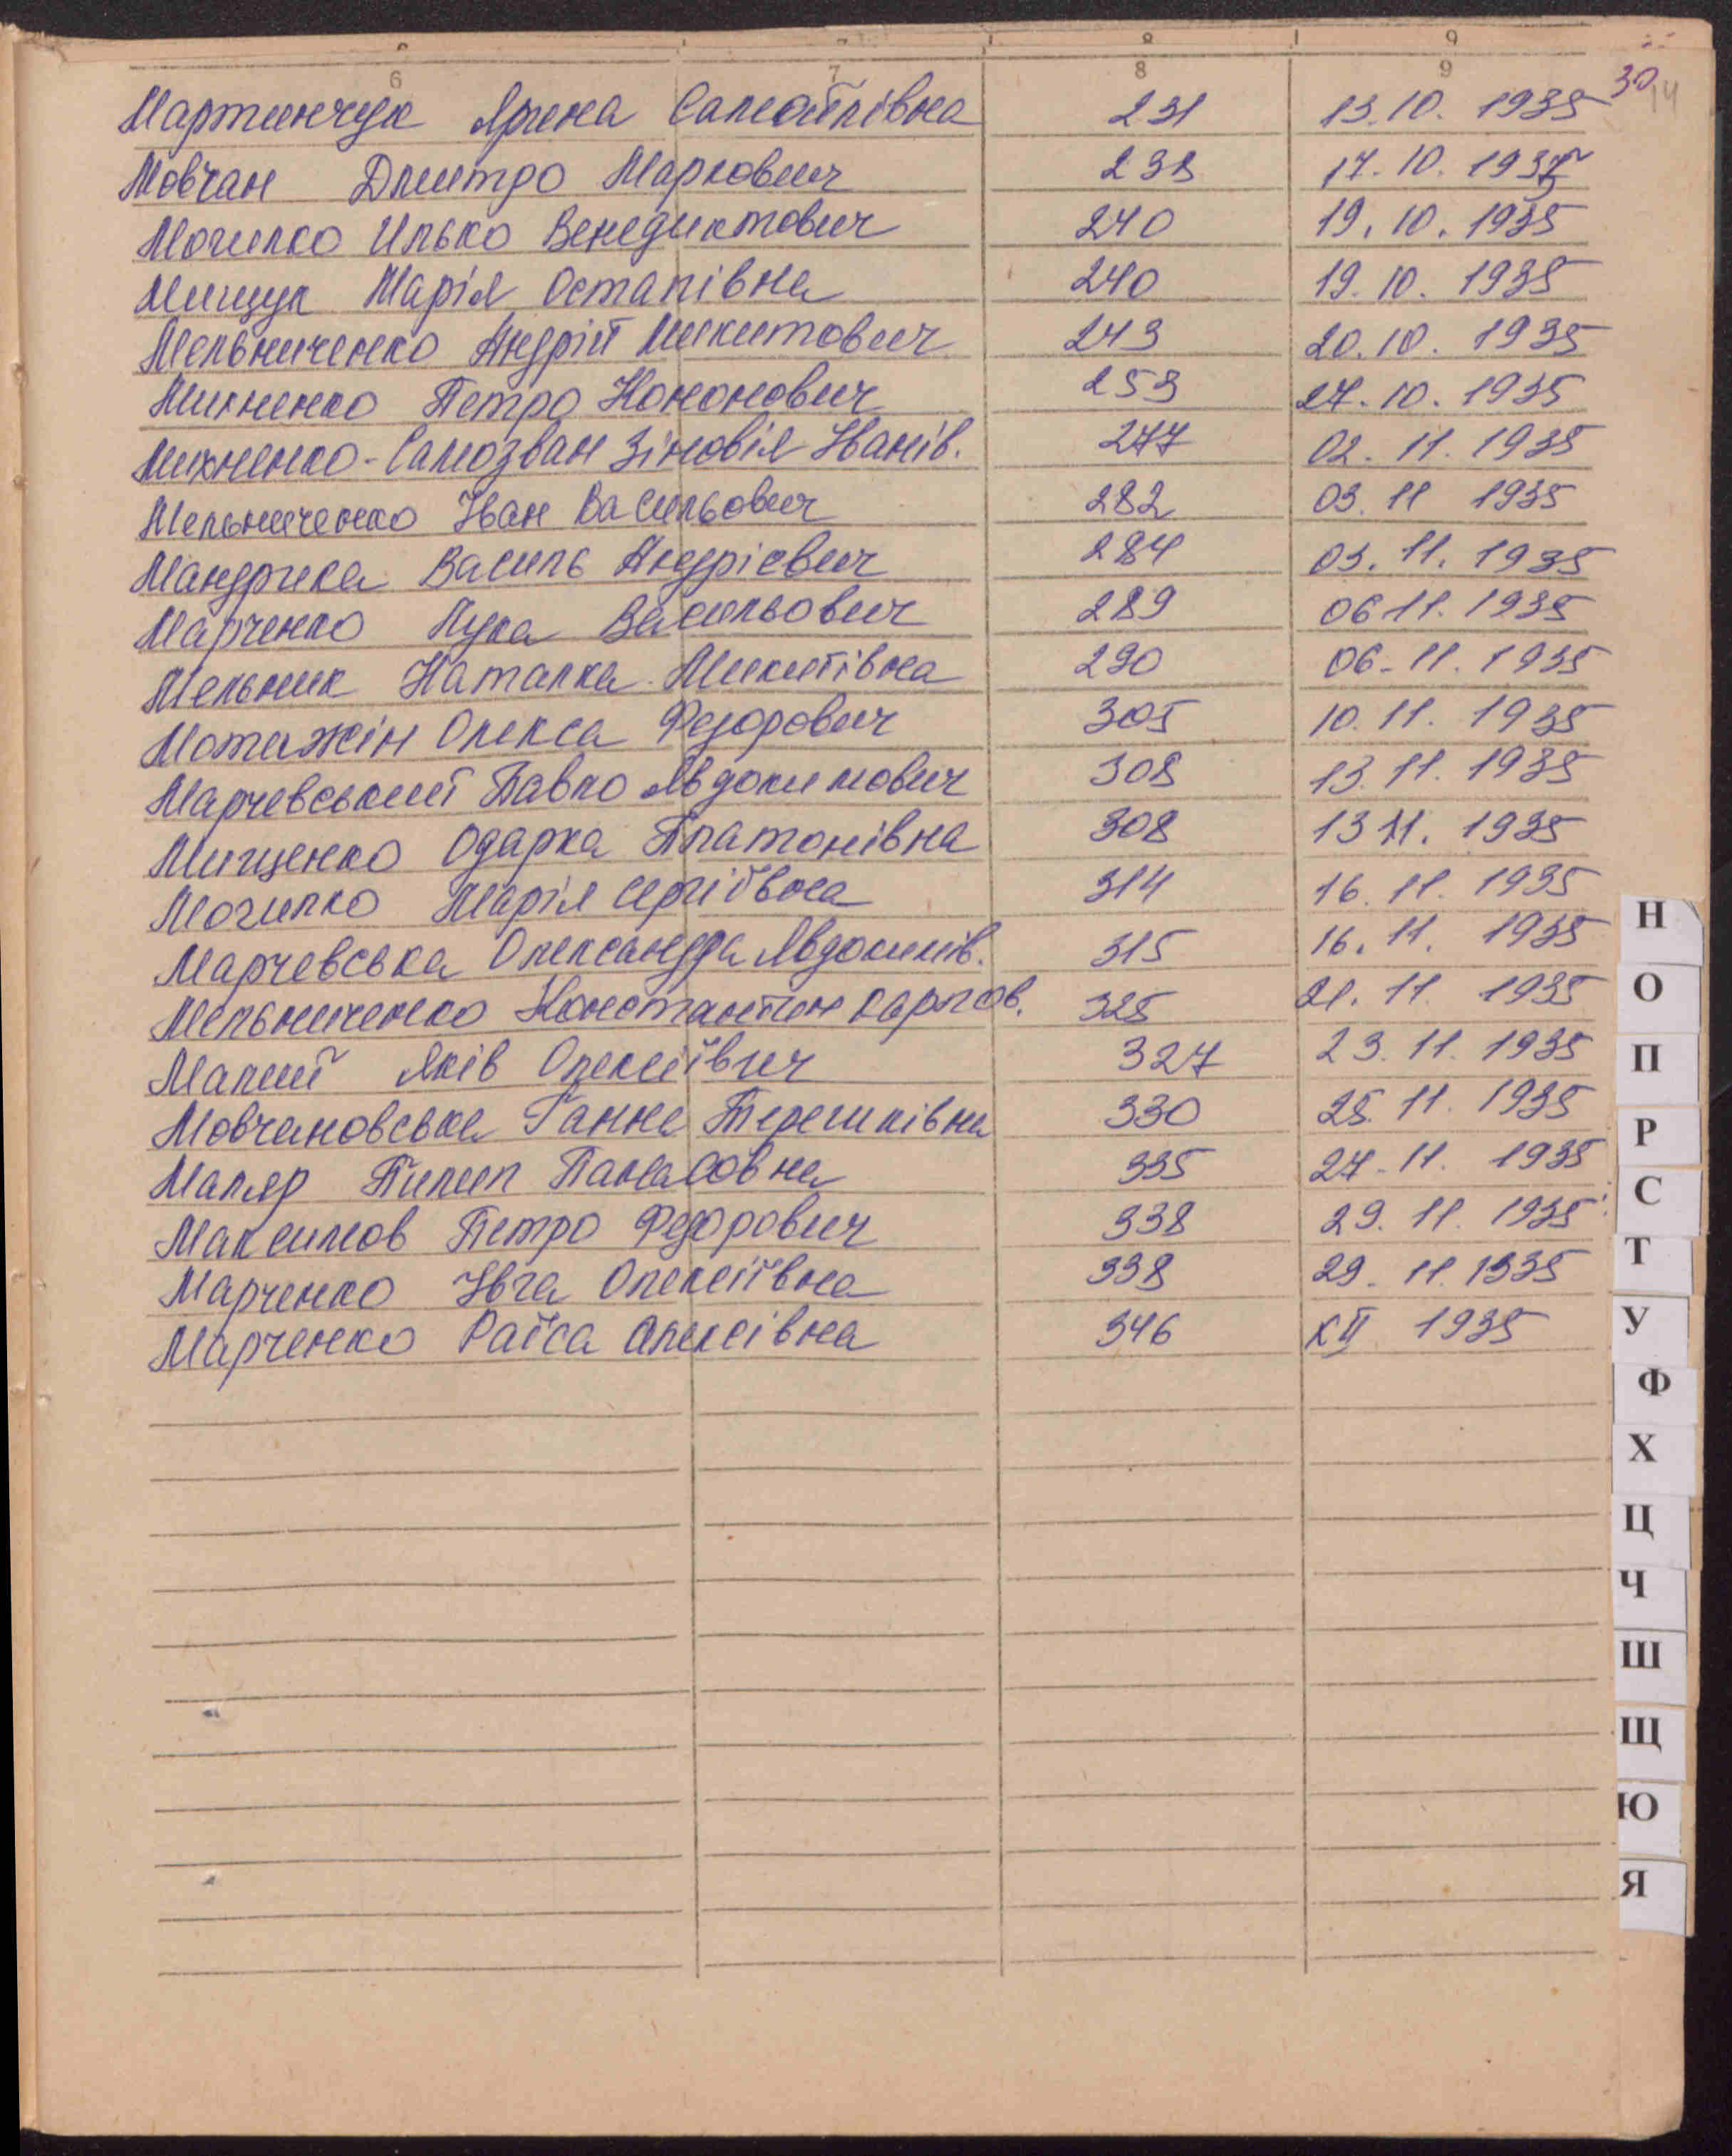 6 7 8 9
6 7 8 9 30
Мартинчук Ярина Самойлівна 231 13.10. 1935
Мовчан Дмитро Маркович 238 17.10. 1935
Могилко Илько Венедиктович 240 19.10.1935
Мищук Марія Остапівна 240 19.10. 1935
Мельниченко Андрій Микитович 243 20.10. 1935
Михненко Петро Кононович 253 27.10.1935
Михненко-Самозван Зіновія Іванів. 277 02.11.1935
Мельниченко Іван Васильович 282 03.11 1935
Мандрика Василь Андрієвич 284 03.11.1935
Марченко Лука Васильович 289 06 11.1935
Мельник Наталка Микитівна 290 06-11.1935
Мотижін Олекса Федорович 305 10.11. 1935
Марчевський Павло Явдокимович 308 13.11.1935
Мищенко Одарка Платонівна 308 13 11. 1935
Могилко Марія Сергіївна 314 16.11.1935
Марчевська Олександра Явдокимів. 315 16.11. 1935
Мельниченко Константин Карпов. 325 21.11. 1935
Малий Яків Олексіївич 327 23.11.1935
Мовчановська Ганна Терешківна 330 25.11.1935
Маляр Пилип Панасовна 335 27-11. 1935
Максимов Петро Федорович 338 29.11. 1935
Марченко Івга Олексіївна 338 29.11.1935
Марченко Раїса Олексівна 346 XII 1935
Н
О
П
Р
С
Т
У
Ф
Х
Ц
Ч
Ш
Щ
Ю
Я